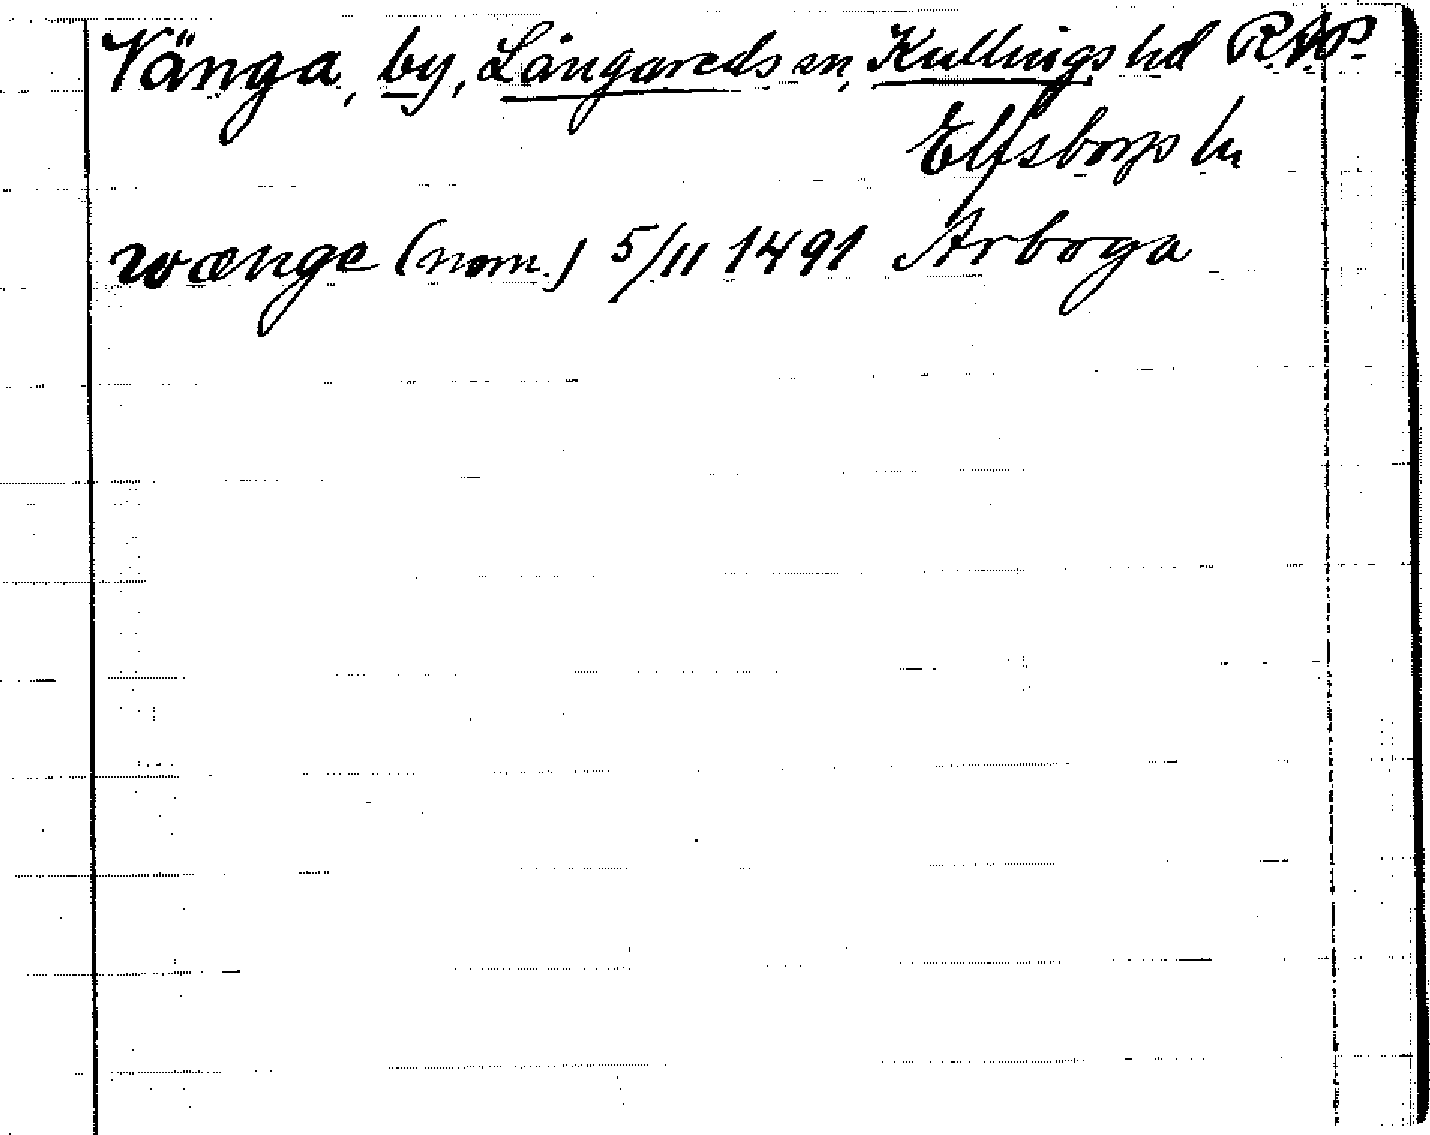 Vänga, by, Långareds sn, Kullings hd RAP.
Elfsborgs ln
wænge (nom.) 5/11 1491 Arboga